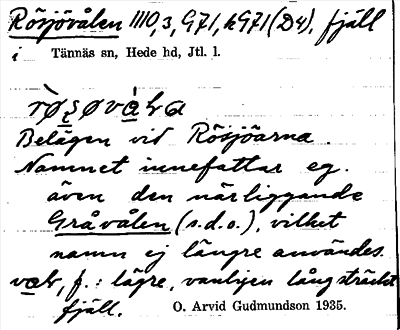 Rösjövålen 1110,3, G71, kG71 (D4), fjäll
i Tännäs sn, Hede hd, Jtl. l.
Belägen vid Rösjöarna.
Namnet innefattar eg.
även den närliggande
Gråvålen (s.d.o.), vilket
namn ej längre användes.
f.: lägre, vanligen långsträckt
fjäll.
O. Arvid Gudmundson 1935.